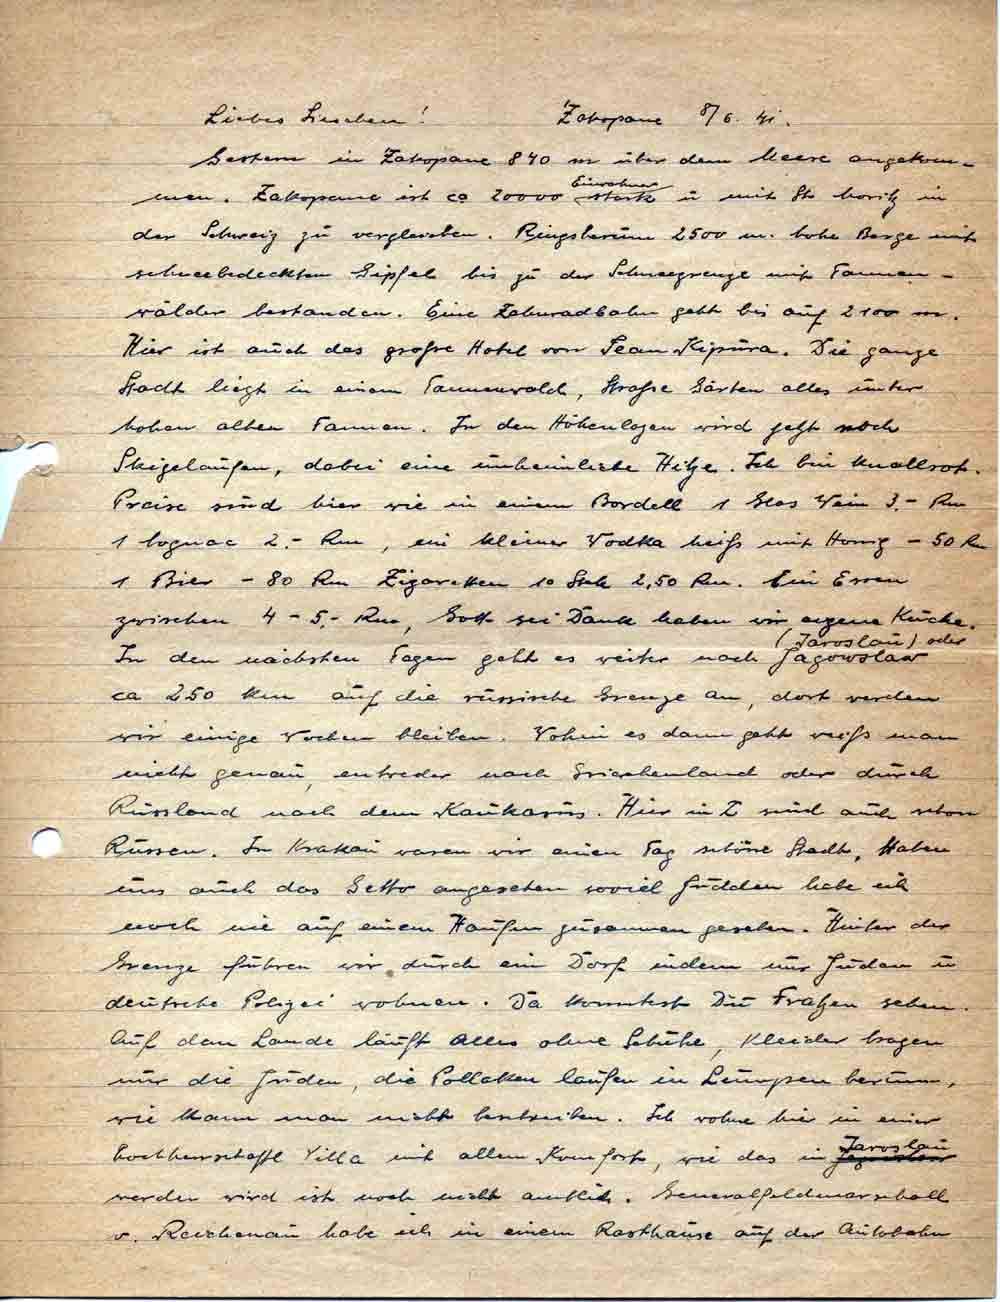 Liebes Lieschen! Zakopane 8/6. 41.
Gestern in Zakopane 840 m über dem Meere angekom-
men. Zakopane ist ca 20000 Einwohner stark u mit St. Moritz in
der Schweiz zu vergleichen. Ringsherum 2500 m. hohe Berge mit
schneebedeckten Gipfel bis zu der Schneegrenze mit Tannen-
wälder bestanden. Eine Zahnradbahn geht bis auf 2100 m.
Hier ist auch das große Hotel von Jean Kipura. Die ganze
Stadt liegt in einem Tannenwald, Straße Gärten alles unter
hohen alten Tannen. In den Höhenlagen wird jetzt noch
Skigelaufen, dabei eine unheimliche Hitze. Ich bin knallrot.
Preise sind hier wie in einem Bordell 1 Glas Wein 3,- Rm
1 Cognac 2.- Rm, ein kleiner Vodka heiß mit Honig - 50 Rm
1 Bier - 80 Rm Zigaretten 10 Stck 2,50 Rm. Ein Essen
zwischen 4 - 5,- Rm, Gott sei Dank haben wir eigene Küche.
In den nächsten Tagen geht es weiter nach Jagowslaw (Jaroslau) oder
ca 250 km auf die russische Grenze an, dort werden
wir einige Wochen bleiben. Wohin es dann geht weiß man
nicht genau, entweder nach Griechenland oder durch
Russland nach dem Kaukasus. Hier in Z sind auch schon
Russen. In Krakau waren wir einen Tag schöne Stadt, Haben
uns auch das Getto angesehen soviel Judden habe ich
noch nie auf einem Haufen zusammen gesehen. Hinter der
Grenze führen wir durch ein Dorf indem nur Juden u
deutsche Polizei wohnen. Da konntest Du Fratzen sehen.
Auf dem Lande läuft alles ohne Schuhe, Kleider tragen
nur die Juden, die Pollaken laufen in Lumpen herum,
wie kann man nicht beschreiben. Ich wohne hier in einer
hochherschaftl Villa mit allem Komfort, wie das in Jaroslau
werden wird ist noch nicht amtlich. Generalfeldmarschall
v. Reichenau habe ich in einem Rasthause auf der Autobahn